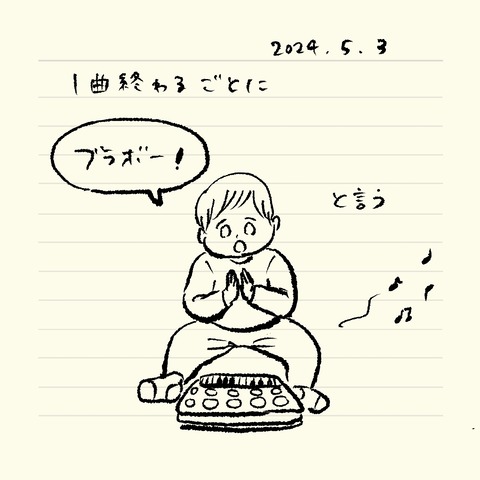 2024.5.3
1曲終わるごとに
ブラボー!
と言う